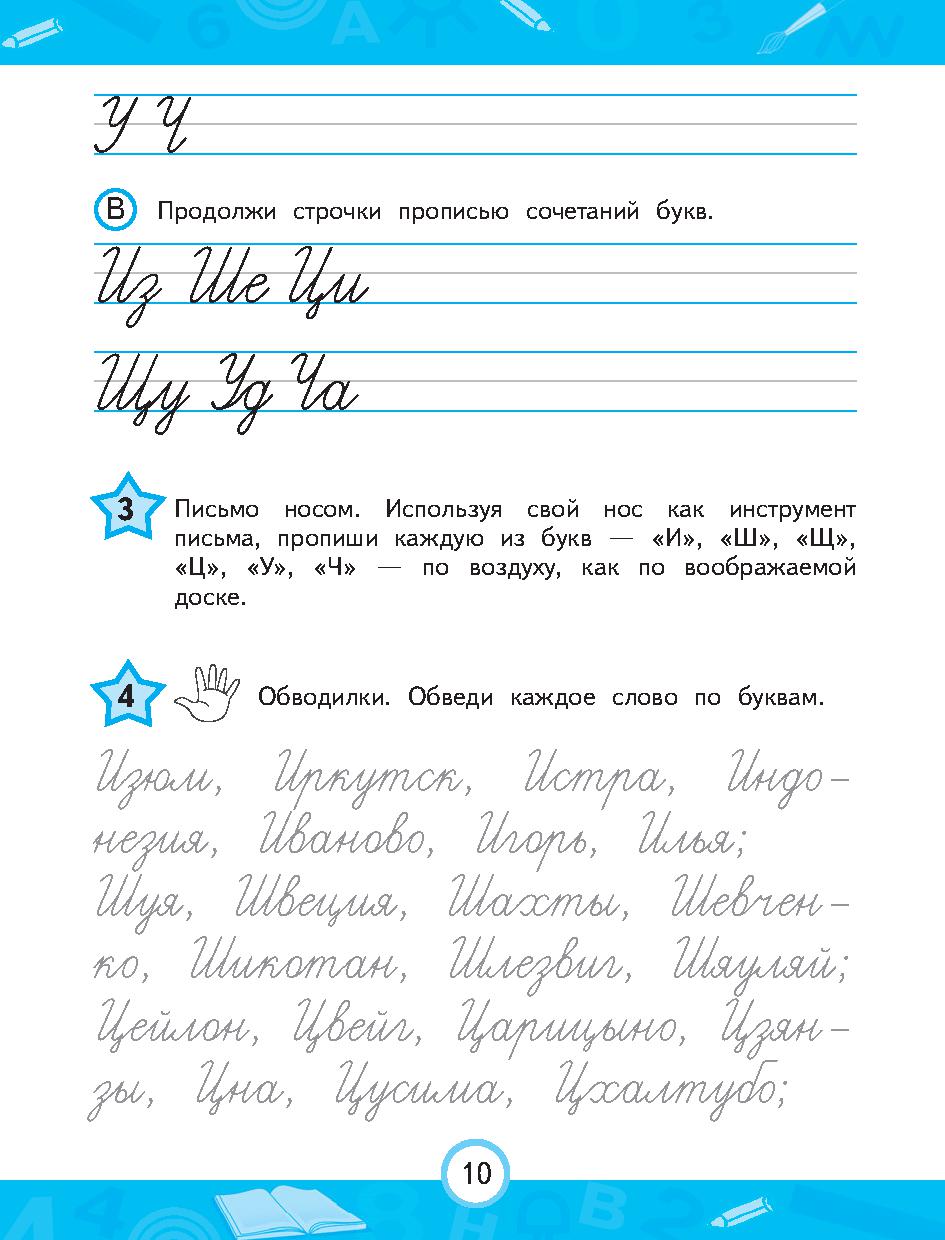 У Ч
В Продолжи строчки прописью сочетаний букв.
Из Ше Ци
Щу Уд Ча
3 Письмо носом. Используя свой нос как инструмент
письма, пропиши каждую из букв — «И», «Ш», «Щ»,
«Ц», «У», «Ч» — по воздуху, как по воображаемой
доске.
4 Обводилки. Обведи каждое слово по буквам.
Изюм, Иркутск, Истра, Индо–
незия, Иваново, Игорь, Илья;
Шуя, Швеция, Шахты, Шевчен–
ко, Шикотан, Шлезвиг, Шяуляй;
Цейлон, Цвейг, Царицыно, Цзян–
зы, Цна, Цусима, Цхалтубо;
10